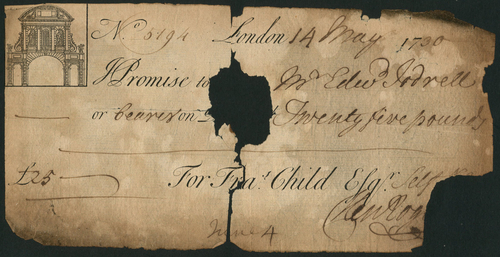 No 6194 London 14 May 1730
I Promise to Mr Edwd Jodrell
or bearer on Twenty five pounds
£25 For Fras Child Esqr Self
June 4